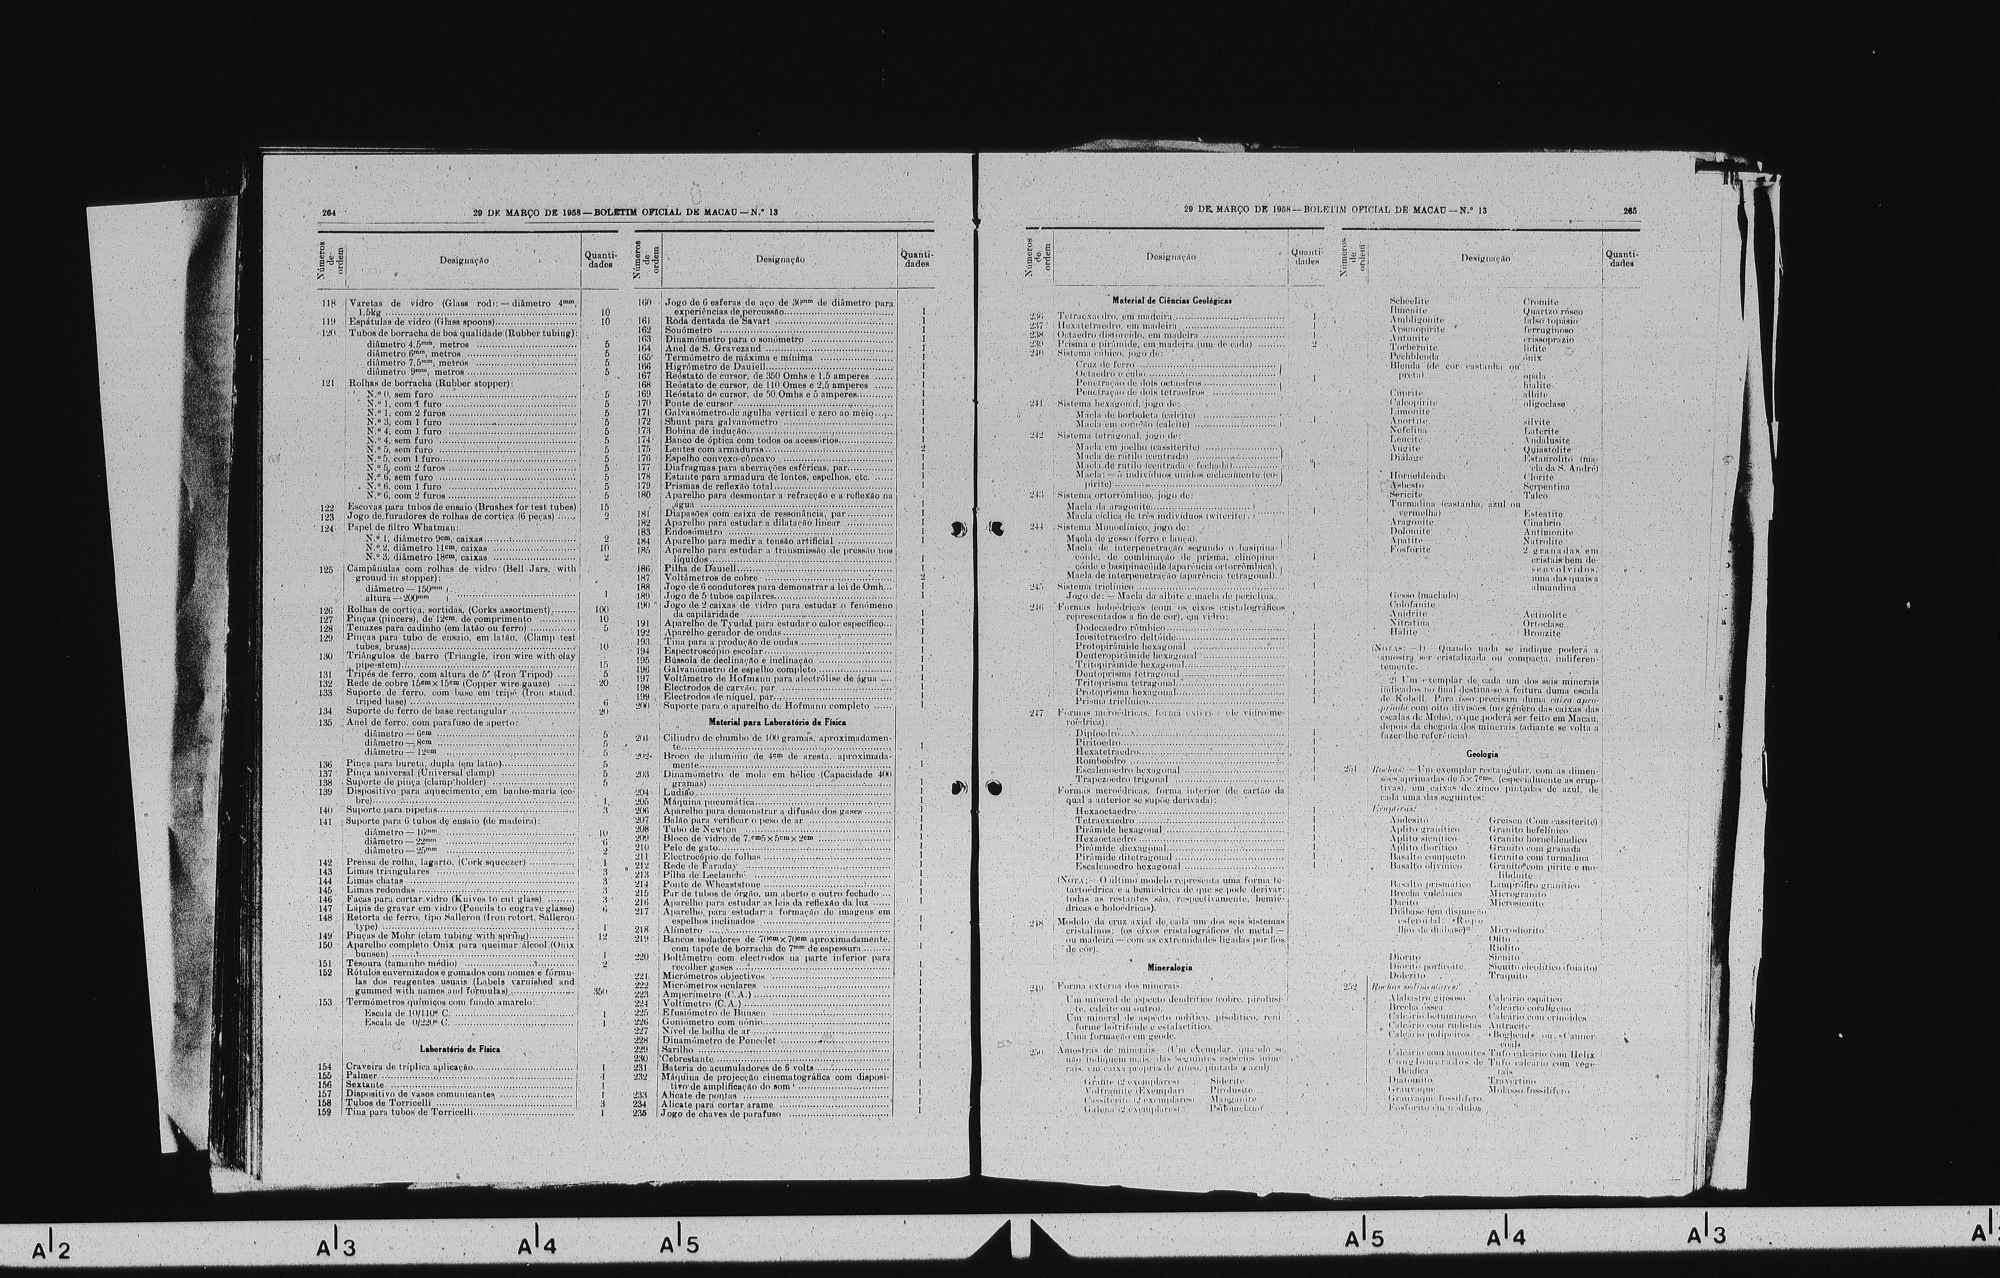 264
29 DE MARÇO DE 1958 — BOLETIM OFICIAL DE MACAU — N.º 13
Números de ordem
Designação
Quanti-
dades
118 Varetas de vidro (Glass rod): — diâmetro 4mm,
1,5kg 10
119 Espátulas de vidro (Glass spoons) 10
120 Tubos de borracha de boa qualidade (Rubber tubing):
diâmetro 4,5mm, metros 5
diâmetro 6mm, metros 5
diâmetro 7,5mm, metros 5
diâmetro 9mm, metros 5
121 Rolhas de borracha (Rubber stopper):
N.º 0, sem furo 5
N.º 1, com 1 furo 5
N.º 1, com 2 furos 5
N.º 3, com 1 furo 5
N.º 4, com 1 furo 5
N.º 4, sem furo 5
N.º 5, sem furo 5
N.º 5, com 1 furo 5
N.º 5, com 2 furos 5
N.º 6, sem furo 5
N.º 6, com 1 furo 5
N.º 6, com 2 furos 5
122 Escovas para tubos de ensaio (Brushes for test tubes) 15
123 Jogo de furadores de rolhas de cortiça (6 peças) 2
124 Papel de filtro Whatman:
N.º 1, diâmetro 9cm, caixas 2
N.º 2, diâmetro 11cm, caixas 10
N.º 3, diâmetro 18cm, caixas 2
125 Campânulas com rolhas de vidro (Bell Jars, with
ground in stopper):
diâmetro — 150mm
altura — 200mm 1
126 Rolhas de cortiça, sortidas, (Corks assortment) 100
127 Pinças (pincers), de 12cm, de comprimento 10
128 Tenazes para cadinho (em latão ou ferro) 5
129 Pinças para tubo de ensaio, em latão, (Clamp test
tubes, brass) 10
130 Triângulos de barro (Triangle, iron wire with clay
pipe-stem) 15
131 Tripés de ferro, com altura de 5" (Iron Tripod) 5
132 Rede de cobre 15cm×15cm (Copper wire gauze) 20
133 Suporte de ferro, com base em tripé (Iron stand,
triped base) 6
134 Suporte de ferro de base rectangular 20
135 Anel de ferro, com parafuso de aperto:
diâmetro — 6cm 5
diâmetro — 8cm 5
diâmetro — 12cm 5
136 Pinça para bureta, dupla (em latão) 5
137 Pinça universal (Universal clamp) 5
138 Suporte de pinça (clamp holder) 5
139 Dispositivo para aquecimento em banho-maria (co-
bre) 1
140 Suporte para pipetas 3
141 Suporte para 6 tubos de ensaio (de madeira):
diâmetro — 16mm 10
diâmetro — 22mm 6
diâmetro — 25mm 2
142 Prensa de rolha, lagarto, (Cork squeezer) 1
143 Limas triangulares 3
144 Limas chatas 3
145 Limas redondas 3
146 Facas para cortar vidro (Knives to cut glass) 3
147 Lápis de gravar em vidro (Pencils to engrave glasse) 6
148 Retorta de ferro, tipo Salleron (Iron retort, Salleron
type) 1
149 Pinças de Mohr (clam tubing with spring) 12
150 Aparelho completo Onix para queimar álcool (Onix
bunsen) 1
151 Tesoura (tamanho médio) 2
152 Rótulos envernizados e gomados com nomes e fórmu-
las dos reagentes usuais (Labels varnished and
gummed with names and formulas) 350
153 Termómetros químicos com fundo amarelo:
Escala de 10/110º C. 1
Escala de 0/220º C. 1
Laboratório de Física
154 Craveira de tríplica aplicação 1
155 Palmer 1
156 Sextante 1
157 Dispositivo de vasos comunicantes 1
158 Tubos de Torricelli 3
159 Tina para tubos de Torricelli 1
Números de ordem
Designação
Quanti-
dades
160 Jogo de 6 esferas de aço de 30mm de diâmetro para
experiências de percussão 1
161 Roda dentada de Savart 1
162 Sonómetro 1
163 Dinamómetro para o sonómetro 1
164 Anel de S. Gravezand 1
165 Termómetro de máxima e mínima 1
166 Higrómetro de Daniell 1
167 Reóstato de cursor, de 350 Omhs e 1,5 amperes 1
168 Reóstato de cursor, de 110 Omes e 2,5 amperes 1
169 Reóstato de cursor, de 50 Omhs e 5 amperes 1
170 Ponte de cursor 1
171 Galvanómetro de agulha vertical e zero ao meio 1
172 Shunt para galvanómetro 1
173 Bobina de indução 1
174 Banco de óptica com todos os acessórios 1
175 Lentes com armaduras 2
176 Espelho convexo-côncavo 1
177 Diafragmas para aberrações esféricas, par 1
178 Estante para armadura de lentes, espelhos, etc. 1
179 Prismas de reflexão total 1
180 Aparelho para desmontar a refracção e a reflexão na
água 1
181 Diapasões com caixa de ressonância, par 1
182 Aparelho para estudar a dilatação linear 1
183 Endosómetro 1
184 Aparelho para medir a tensão artificial 1
185 Aparelho para estudar a transmissão de pressão nos
líquidos 1
186 Pilha de Daniell 1
187 Voltâmetros de cobre 2
188 Jogo de 6 condutores para demonstrar a lei de Omh 1
189 Jogo de 5 tubos capilares 1
190 Jogo de 2 caixas de vidro para estudar o fenómeno
da capilaridade 1
191 Aparelho de Tyudal para estudar o calor específico 1
192 Aparelho gerador de ondas 1
193 Tina para a produção de ondas 1
194 Espectroscópio escolar 1
195 Bússola de declinação e inclinação 1
196 Galvanómetro de espelho completo 1
197 Voltâmetro de Hofmann para alectrólise de água 1
198 Electrodos de carvão, par 1
199 Electrodos de níquel, par 1
200 Suporte para o aparelho de Hofmann completo 1
Material para Laboratório de Física
201 Cilindro de chumbo de 400 gramas, aproximadamen-
te 1
202 Broco de alumínio de 4cm de aresta, aproximada-
mente 1
203 Dinamómetro de mola em hélice (Capacidade 400
gramas) 1
204 Ludião 1
205 Máquina pneumática 1
206 Aparelho para demonstrar a difusão dos gases 1
207 Balão para verificar o peso de ar 1
208 Tubo de Newton 1
209 Bloco de vidro de 7,cm5×5cm×2cm 1
210 Pele de gato 1
211 Electrocópio de folhas 1
212 Rede de Faraday 1
213 Pilha de Leclanché 1
214 Ponte de Wheaststone 1
215 Par de tubos de órgão, um aberto e outro fechado 1
216 Aparelho para estudar as leis da reflexão da luz 1
217 Aparelho para estudar a formação de imagens em
espelhos inclinados 1
218 Alímetro 1
219 Bancos isoladores de 70cm×70cm aproximadamente,
com tapete de borracha de 7mm de espessura 1
220 Boltâmetro com electrodos na parte inferior para
recolher gases 1
221 Micrómetros objectivos 1
222 Micrómetros oculares 1
223 Amperímetro (C.A.) 1
224 Voltímetro (C.A.) 1
225 Efusiómetro de Bunsen 1
226 Goniómetro com nónio 1
227 Nível de bolha de ar 1
228 Dinamómetro de Poncelet 1
229 Sarilho 1
230 Cebrestante 1
231 Bateria de acumuladores de 6 volts 1
232 Máquina de projecção cinematográfica com disposi-
tivo de amplificação do som 1
233 Alicate de pontas 1
234 Alicate para cortar arame 1
235 Jogo de chaves de parafuso 1
29 DE MARÇO DE 1958 — BOLETIM OFICIAL DE MACAU — N.º 13
265
Números de ordem
Designação
Quanti-
dades
Material de Ciências Geológicas
236 Tetraexaedro, em madeira 1
237 Hexatetraedro, em madeira 1
238 Octaedro distorcido, em madeira 1
239 Prisma e pirâmide, em madeira (um de cada) 2
240 Sistema cúbico, jogo de:
Cruz de ferro
Octaedro e cubo
Penetração de dois octaedros 1
Penetração de dois tetraedros
241 Sistema hexagonal, jogo de:
Macla de borboleta (calcite)
Macla em coração (calcite) 1
242 Sistema tetragonal, jogo de:
Macla em joelho (cassiterite)
Macla de rutilo (centrada)
Macla de rutilo (centrada e fechada)
Macla: — 5 indivíduos unidos ciclicamente (es-
pirite)
243 Sistema ortorrômbico, jogo de:
Macla da aragonite
Macla cíclica de três indivíduos (witerite) 1
244 Sistema Monoclínico, jogo de:
Macla de gesso (ferro e lança)
Macla de interpenetração segundo o basipina-
cóide, de combinação de prisma, clinopina-
cóide e basipinacóide (aparência ortorrômbica) 1
Macla de interpenetração (aparência tetragonal)
245 Sistema triclínico 1
Jogo de: — Macla de albite e macla de periclina.
246 Formas holoédricas (com os eixos cristalográficos
representados a fio de cor), em vidro:
Dodecaedro rômbico 1
Icositetraedro deltóide 1
Protopirâmide hexagonal 1
Deuteropirâmide hexagonal 1
Tritopirâmide hexagonal 1
Deutoprisma tetragonal 1
Tritoprisma tetragonal 1
Protoprisma hexagonal 1
Prisma triclínico 1
247 Formas meroédricas, forma exterior (de vidro e me-
roédrica):
Diploedro 1
Piritoedro 1
Hexatetraedro 1
Romboedro 1
Escalenoedro hexagonal 1
Trapezoedro trigonal 1
Formas meroédricas, forma interior (de cartão da
qual a anterior se supõe derivada):
Hexaoctaedro 1
Tetraexaedro 1
Pirâmide hexagonal 1
Hexaoctaedro 1
Pirâmide diexagonal 1
Pirâmide ditetragonal 1
Escalenoedro hexagonal 1
(NOTA: — O último modelo representa uma forma te-
tartoédrica e a hemiédrica de que se pode derivar;
todas as restantes são, respectivamente, hemié-
dricas e holoédricas).
248 Modelo da cruz axial de cada um dos seis sistemas
cristalinos: (os eixos cristalográficos de metal —
ou madeira — com as extremidades ligadas por fios
de cor).
Mineralogia
249 Forma externa dos minerais.
Um mineral de aspecto dendrítico (cobre, pirolusi-
te, calcite ou outro).
Um mineral de aspecto oolítico, pisolítico, reni-
forme botrifóide e estalactítico.
Uma formação em geode.
250 Amostras de minerais. (Um exemplar, quando se
não indiquem mais, das seguintes espécies mine-
rais, em caixa própria de zinco, pintada a azul):
Grafite (2 exemplares) Siderite
Volframite (Exemplar) Pirolusite
Cassiterite (2 exemplares) Manganite
Galena (2 exemplares) Psilomelano
Números de ordem
Designação
Quanti-
dades
Scheelite Cromite
Ilmenite Quartzo róseo
Ambligonite falso topásio
Arsenopirite ferruginoso
Autunite crissoprazio
Torbernite lidite
Pechblenda ónix
Blenda (de cor castanha ou
preta) opala
hialite
Cuprite albite
Calcopirite oligoclase
Limonite
Anortite silvite
Nefelina Laterite
Leucite Andalusite
Augite Quiastolite
Diálage Estaurolito (ma-
cla da S. André)
Horneblenda Clorite
Asbesto Serpentina
Sericite Talco
Turmalina (castanha, azul ou
vermelha) Esteatite
Aragonite Cinabrio
Dolomite Antimonite
Apatite Natrolite
Fosforite 2 granadas em
cristais bem de-
senvolvidos,
uma das quais a
almandina
Gesso (maclado)
Colofanite
Anidrite Actinolite
Nitratina Ortoclase
Halite Bronzite
(NOTAS: — 1) Quando nada se indique poderá a
amostra ser cristalizada ou compacta, indiferen-
temente.
2) Um exemplar de cada um dos seis minerais
indicados no final destina-se à feitura duma escala
de Kobell. Para isso precisam duma caixa apro-
priada com oito divisões (no género das caixas das
escalas de Mohs), o que poderá ser feito em Macau,
depois da chegada dos minerais (adiante se volta a
fazer-lhe referência).
Geologia
251 Rochas: — Um exemplar rectangular, com as dimen-
sões aprimadas de 5×7cms, (especialmente as erup-
tivas), em caixas de zinco pintadas de azul, de
cada uma das seguintes:
Eruptivas:
Andesito Greisen (Com cassiterite)
Aplito granítico Granito hefelínico
Aplito sienítico Granito horneblendico
Aplito diorítico Granito com granada
Basalto compacto Granito com turmalina
Basalto olivínico Granito com pirite e mo-
libdnite
Basalto prismático Lamprófiro granítico
Brecha vulcânica Microgranito
Dacito Microssienito
Diábase (em disjunção
esferoidal: «Repo-
lhos de diábase)» Microdiorito
Ofito
Riolito
Diorito Sienito
Diorito porfiroite Sienito eleolítico (foiaito)
Dolerito Traquito
252 Rochas sedimentares:
Alabastro gipsoso Calcário espático
Brecha óssea Calcário coralígeno
Calcário betuminoso Calcário com crinóides
Calcário com rudistas Antracite
Calcário polipeiros «Boghead» ou «Canner
coal»
Calcário com amonites Tufo calcário com Helix
Conglomerados de Tufo calcário com vege-
Benfica tais
Diatomito Travertino
Grauvaque Molasso fossilífero
Grauvaque fossilífero
Fosforito em nódulos
A|2 A|3 A|4 A|5 A|5 A|4 A|3